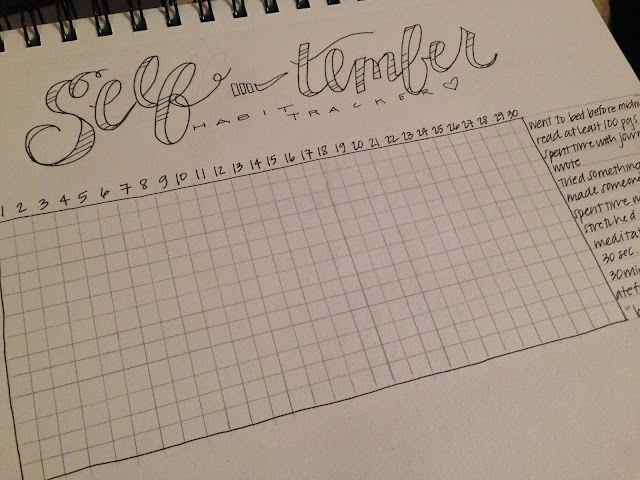 Self-tember
HABIT
TRACKER ♡
1 2 3 4 5 6 7 8 9 10 11 12 13 14 15 16 17 18 19 20 21 22 23 24 25 26 27 28 29 30
went to bed before
read at least 100 pgs
spent time with
wrote
Tried something
made
spent time
stretched
30 sec.